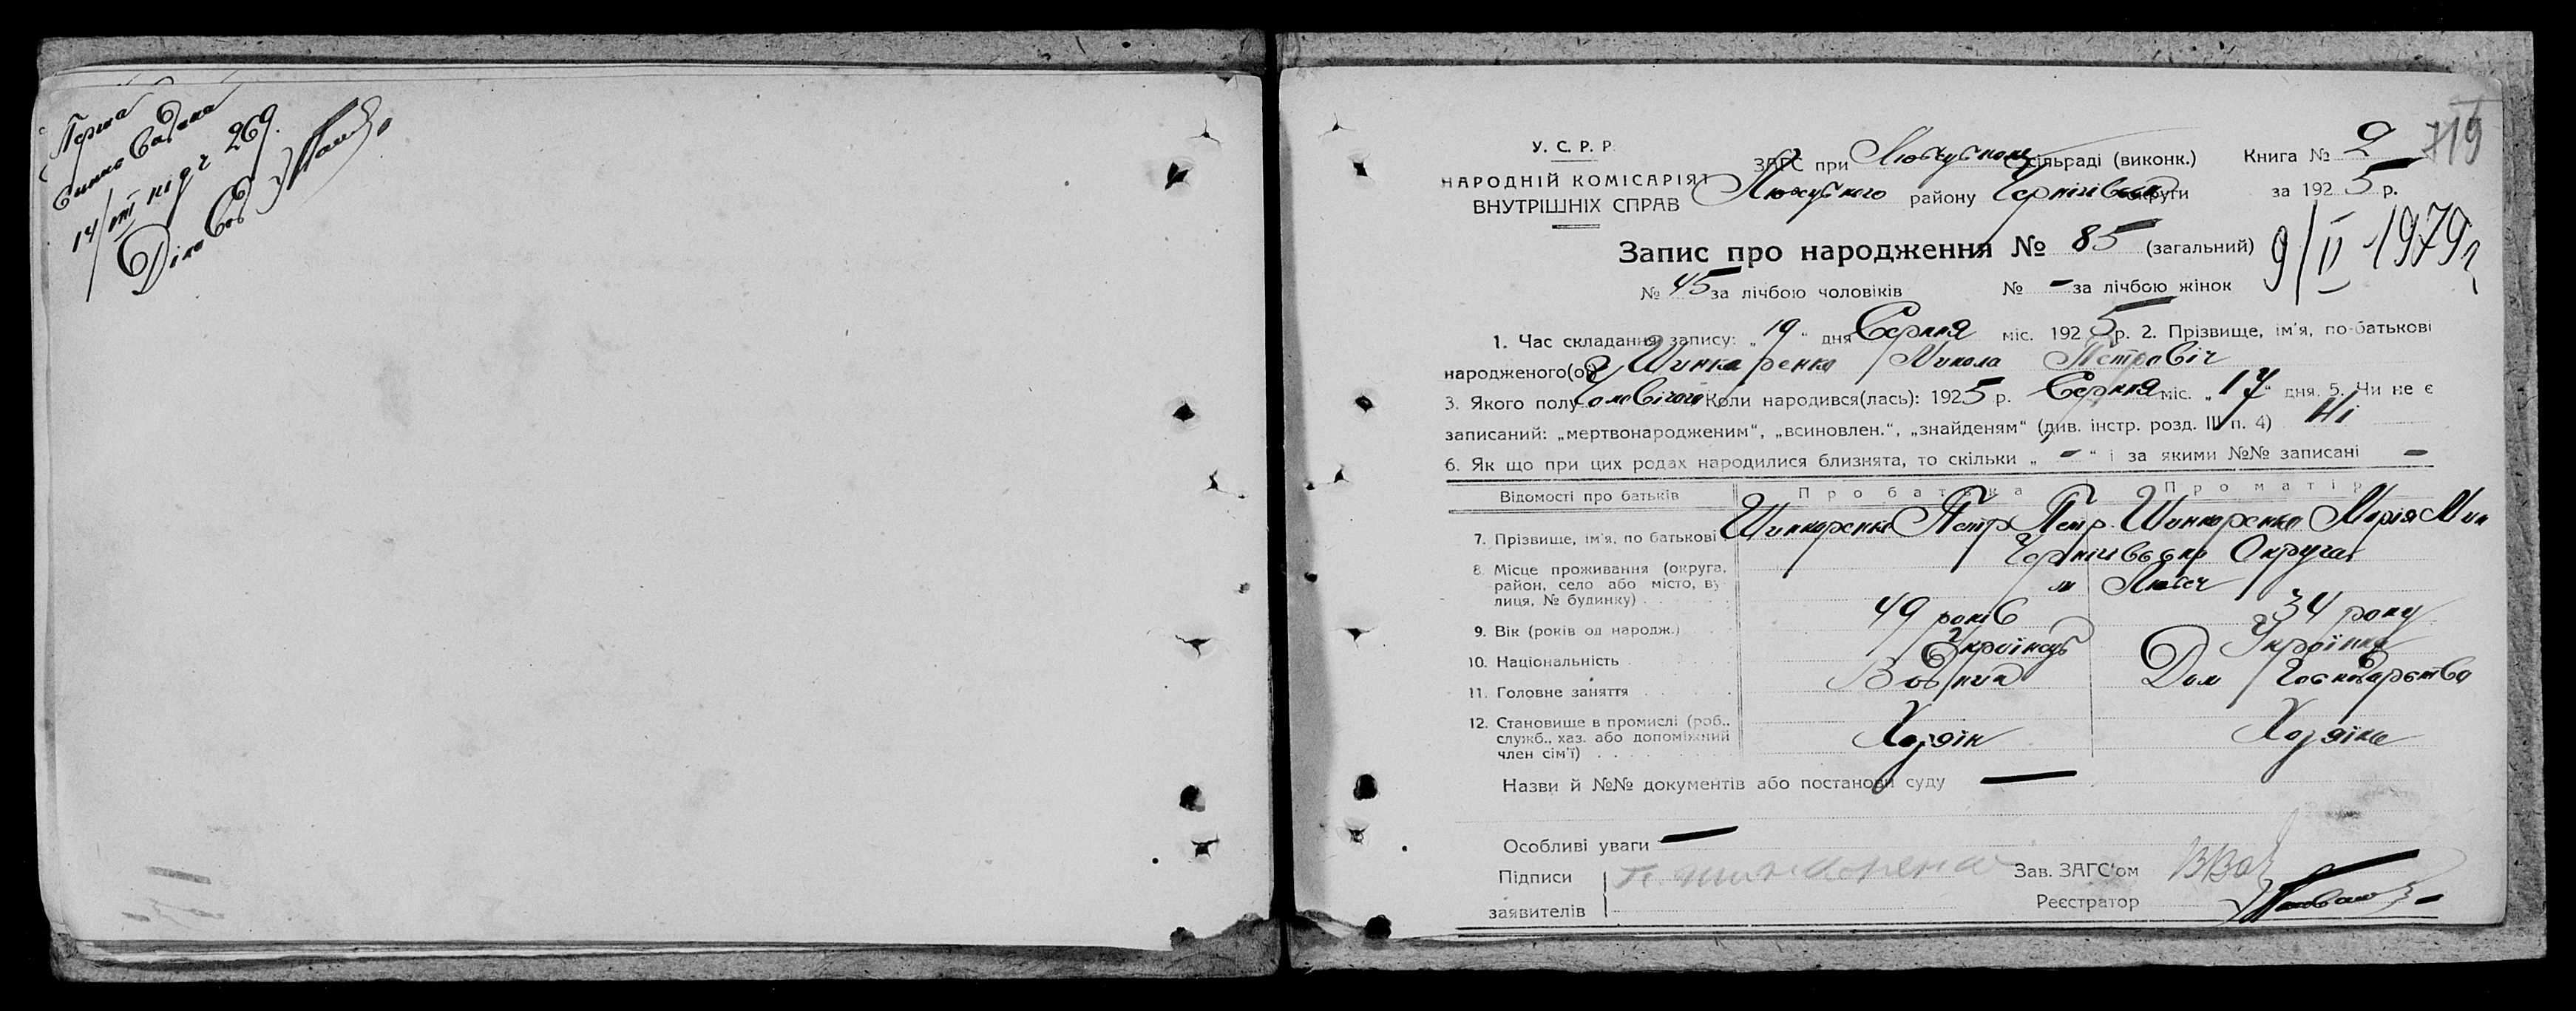 Перша
виписка видана
14/VIII під ч 269.
Діловод
У. С. Р. Р.
НАРОДНІЙ КОМІСАРІЯТ
ВНУТРІШНІХ СПРАВ
ЗАГС при Любецькому сільраді (виконк.) Книга № 2 719
Любецького району Чернігівськ округи за 1925 р.
Запис про народження № 85 (загальний) 9/II 1979 г
№ 45 за лічбою чоловіків № - за лічбою жінок
1. Час складання запису: „19“ дня Серпня міс. 1925 р. 2. Прізвище, ім'я, по-батькові
народженого(ої) Шинкаренко Микола Петровіч
3. Якого полу Чоловічого Коли народився(лась): 1925 р. Серпня міс. „17“ дня. 5. Чи не є
записаний: „мертвонародженим“, „всиновлен.“, „знайденям“ (див. інстр. розд. III п. 4) Ні
6. Як що при цих родах народилися близнята, то скільки „-“ і за якими №№ записані -
Відомості про батьків Про батька Про матір
7. Прізвище, ім'я, по батькові Шинкаренко Петр Петр. Шинкаренко Марія Мик
8. Місце проживання (округа, район, село або місто, вулиця, № будинку) Чернігівська Округа
м Любеч
9. Вік (років од народж.) 49 років 34 року
10. Національність Українець Українка
11. Головне заняття Дом Господарство
12. Становище в промислі (роб., служб., хаз. або допоміжний член сім'ї) Хозяїн Хозяїка
Назви й №№ документів або постанови суду —
Особливі уваги —
Підписи Зав. ЗАГС'ом
заявителів Реєстратор